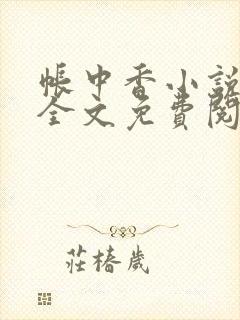 帳中香小說
全文免費閱
莊椿歲